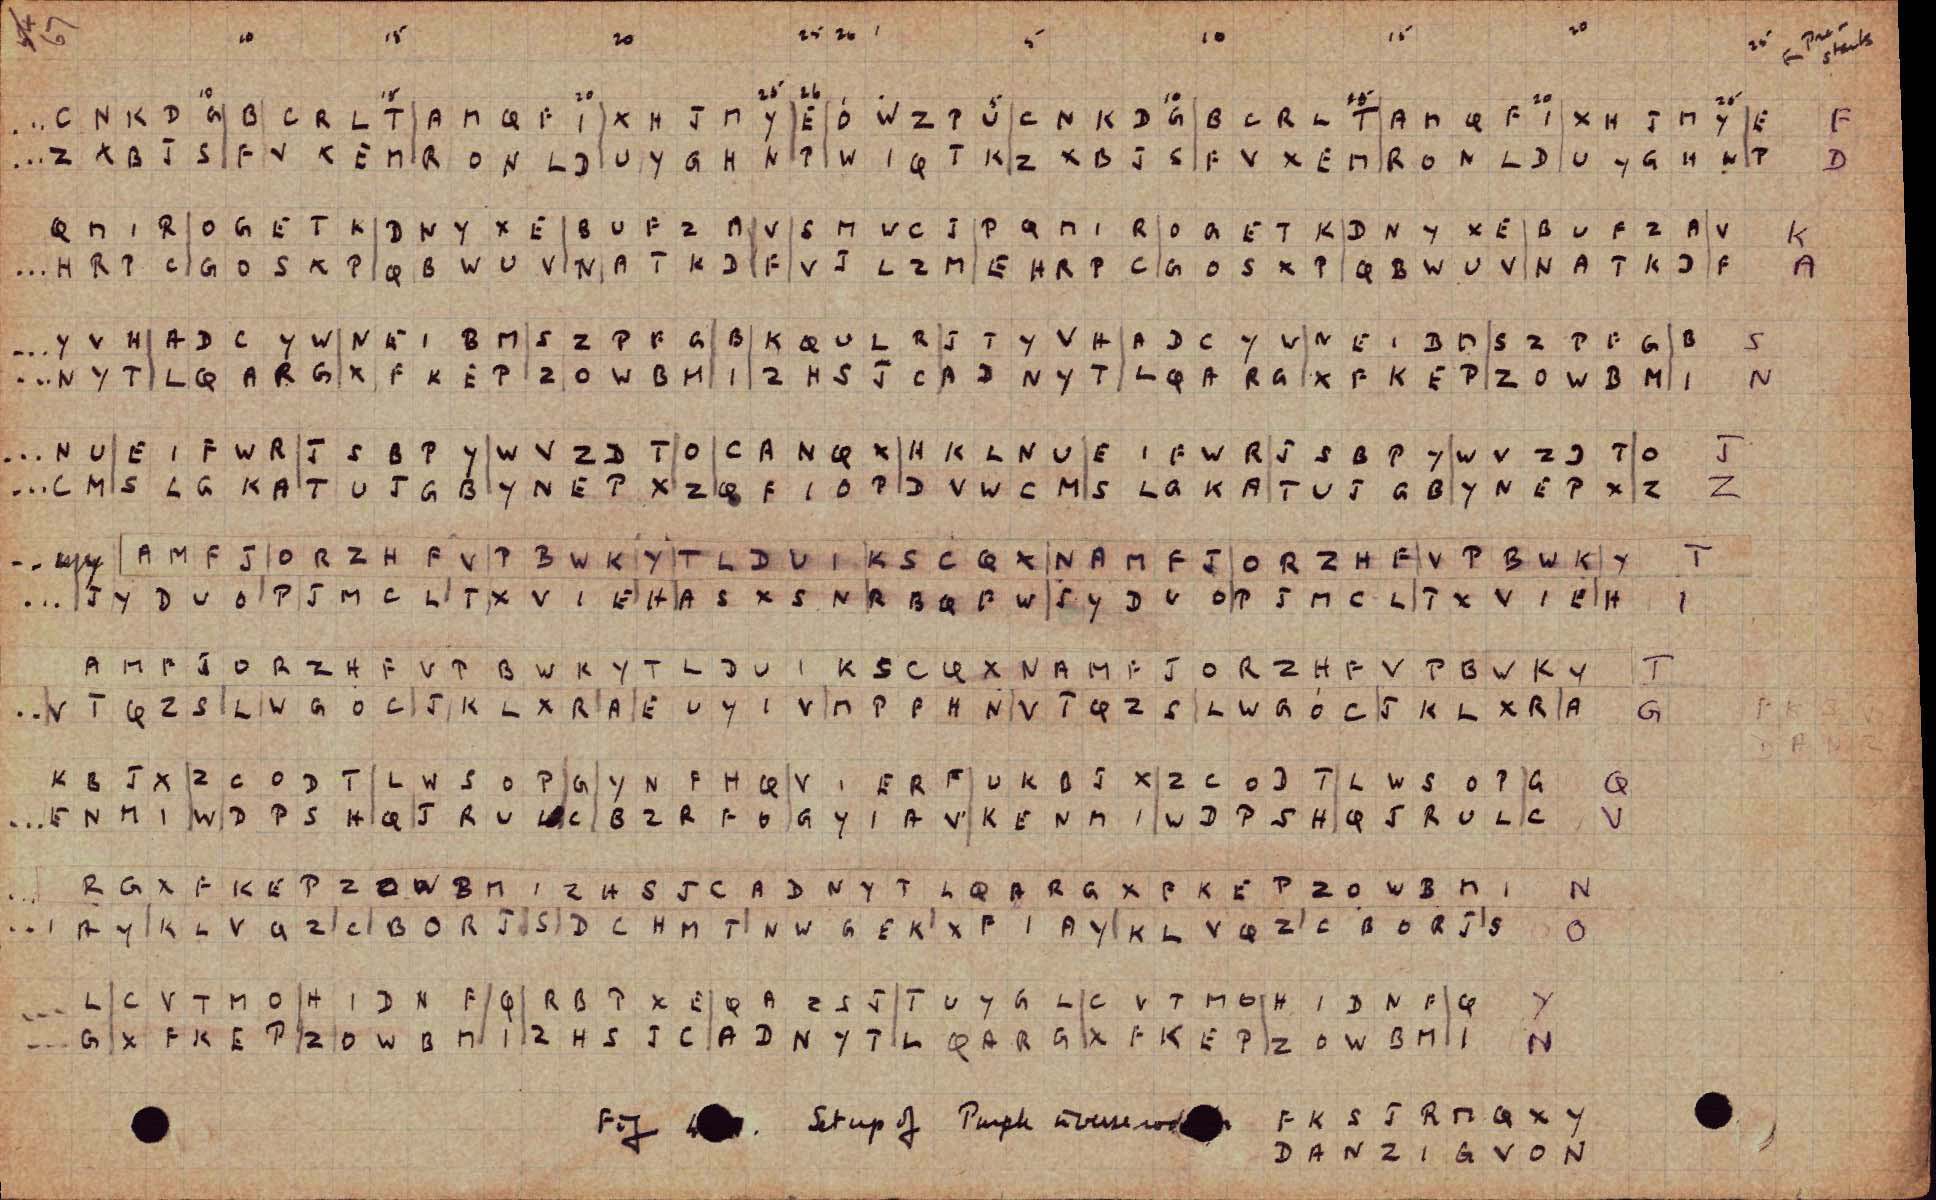 67
10 15 20 25 26 1 5 10 15 20 25 ← Pre-starts
10 15 20 25 26 5 10 15 20 25
...C N K D G|B|C R L T|A M Q F I|X H J M Y|E|O W Z P U|C N K D G|B C R L T|A M Q F I|X H J M Y|E F
...Z X B J S|F V X E M|R O N L D|U|Y G H N P|W I Q T K|Z X B J S|F V X E M|R O N L D|U Y G H N|P D
Q M I R|O G E T K|D N Y X E|B U F Z A|V|S M W C J|P Q M I R|O G E T K|D N Y X E|B U F Z A|V K
...H R P C|G O S X P|Q B W U V|N|A T K D|F|V J L Z M|E H R P C|G O S X P|Q B W U V|N A T K D|F A
...Y V H|A D C Y W|N E I B M|S Z P F G|B|K Q U L R|J T Y V H|A D C Y W|N E I B M|S Z P F G|B S
...N Y T|L Q A R G|X F K E P|Z O W B M|I|Z H S J C|A D N Y T|L Q A R G|X F K E P|Z O W B M|I N
...N U|E I F W R|J S B P Y|W V Z D T|O|C A N Q X|H K L N U|E I F W R|J S B P Y|W V Z D T|O J
...C M|S L G K A|T U J G B|Y N E P X|Z|Q F I O P|D V W C M|S L G K A|T U J G B|Y N E P X|Z Z
|A M F J|O R Z H F V|P B W K|Y|T L D U I|K S C Q X|N A M F J|O R Z H F|V P B W K|Y T
...|J Y D U O|P J M C L|T X V I E|H|A S X S N|R B Q F W|J Y D U O|P J M C L|T X V I E|H I
A M F J O R Z H F V P B W K Y T L D U I K S C Q X N A M F J O R Z H F V P B W K Y T
..|V T Q Z S|L|W G O C|J|K L X R|A|E U Y I V|M P F H N|V T Q Z S|L W G O C|J K L X R|A G
K B J X|Z C O D T|L W S O P|G|Y N F H Q|V I E R F|U K B J X|Z C O D T|L W S O P|G Q
...E N M I|W|D P S H|Q|J R U L|C|B Z R F O|G Y I A V|K E N M I|W D P S H|Q J R U L|C V
...R G X F K E P Z O W B M I Z H S J C A D N Y T L Q A R G X F K E P Z O W B M I N
...I A Y|K L V Q Z|C|B O R J|S|D C H M T|N W G E K|X F I A Y|K L V Q Z|C B O R J|S O
...L|C V T M O|H I D N F|Q|R B P X E|Q A Z S J|T U Y G L|C V T M O|H I D N F|Q Y
...G|X F K E P|Z O W B M|I|Z H S J C|A D N Y T|L Q A R G|X F K E P|Z O W B M|I N
Fig. Set up of Purple inverse F K S J R M Q X Y
D A N Z I G V O N